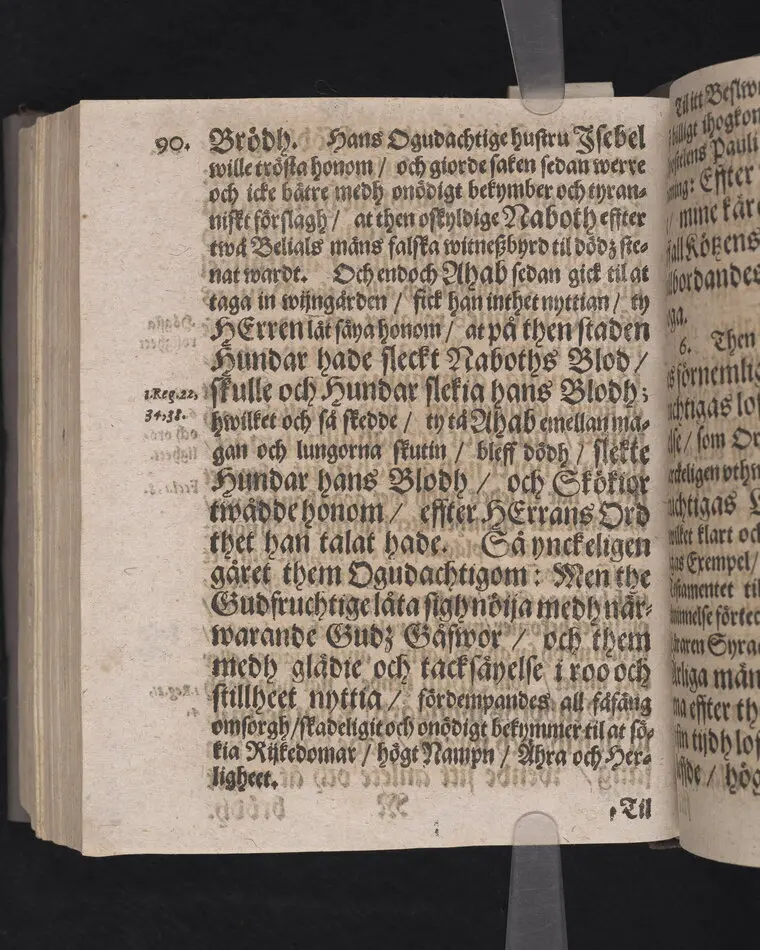 90.
Brödh. Hans Ogudachtige hustru Jsebel
wille trösta honom / och giorde saken sedan werre
och icke bätre medh onödigt bekymber och tyran-
niskt förslagh / at then oskyldige Naboth effter
twå Belials mäns falska witneßbyrd til dödz ste-
nat wardt. Och endoch Ahab sedan gick til at
taga in wijngården / fick han inthet nyttian / ty
HErren lät säya honom / at på then staden
Hundar hade sleckt Naboths Blod /
1.Reg.22,
34,38.
skulle och Hundar slekia hans Blodh;
hwilket och så skedde / ty tå Ahab emellan ma-
gan och lungorna skutin / bleff dödh / slekte
Hundar hans Blodh / och Skökior
twådde honom / effter HErrans Ord
thet han talat hade. Så ynckeligen
gåret them Ogudachtigom: Men the
Gudfruchtige låta sigh nöija medh när-
warande Gudz Gåfwor / och them
medh glädie och tacksäyelse i roo och
stillheet nyttia / fördempandes all fåfäng
omsorgh / skadeligit och onödigt bekymmer til at sö-
kia Rijkedomar / högt Nampn / Ähra och Her-
ligheet.
Til
Til itt Beslw
billigt ihogkom
Pauli
Effter
/ mine kär
all Kötzens
bordandes
6. Then
förnemlig
/ som Or
klart och
Exempel /
til
Syra
liga män
effter th
tijdh lof
/ hög